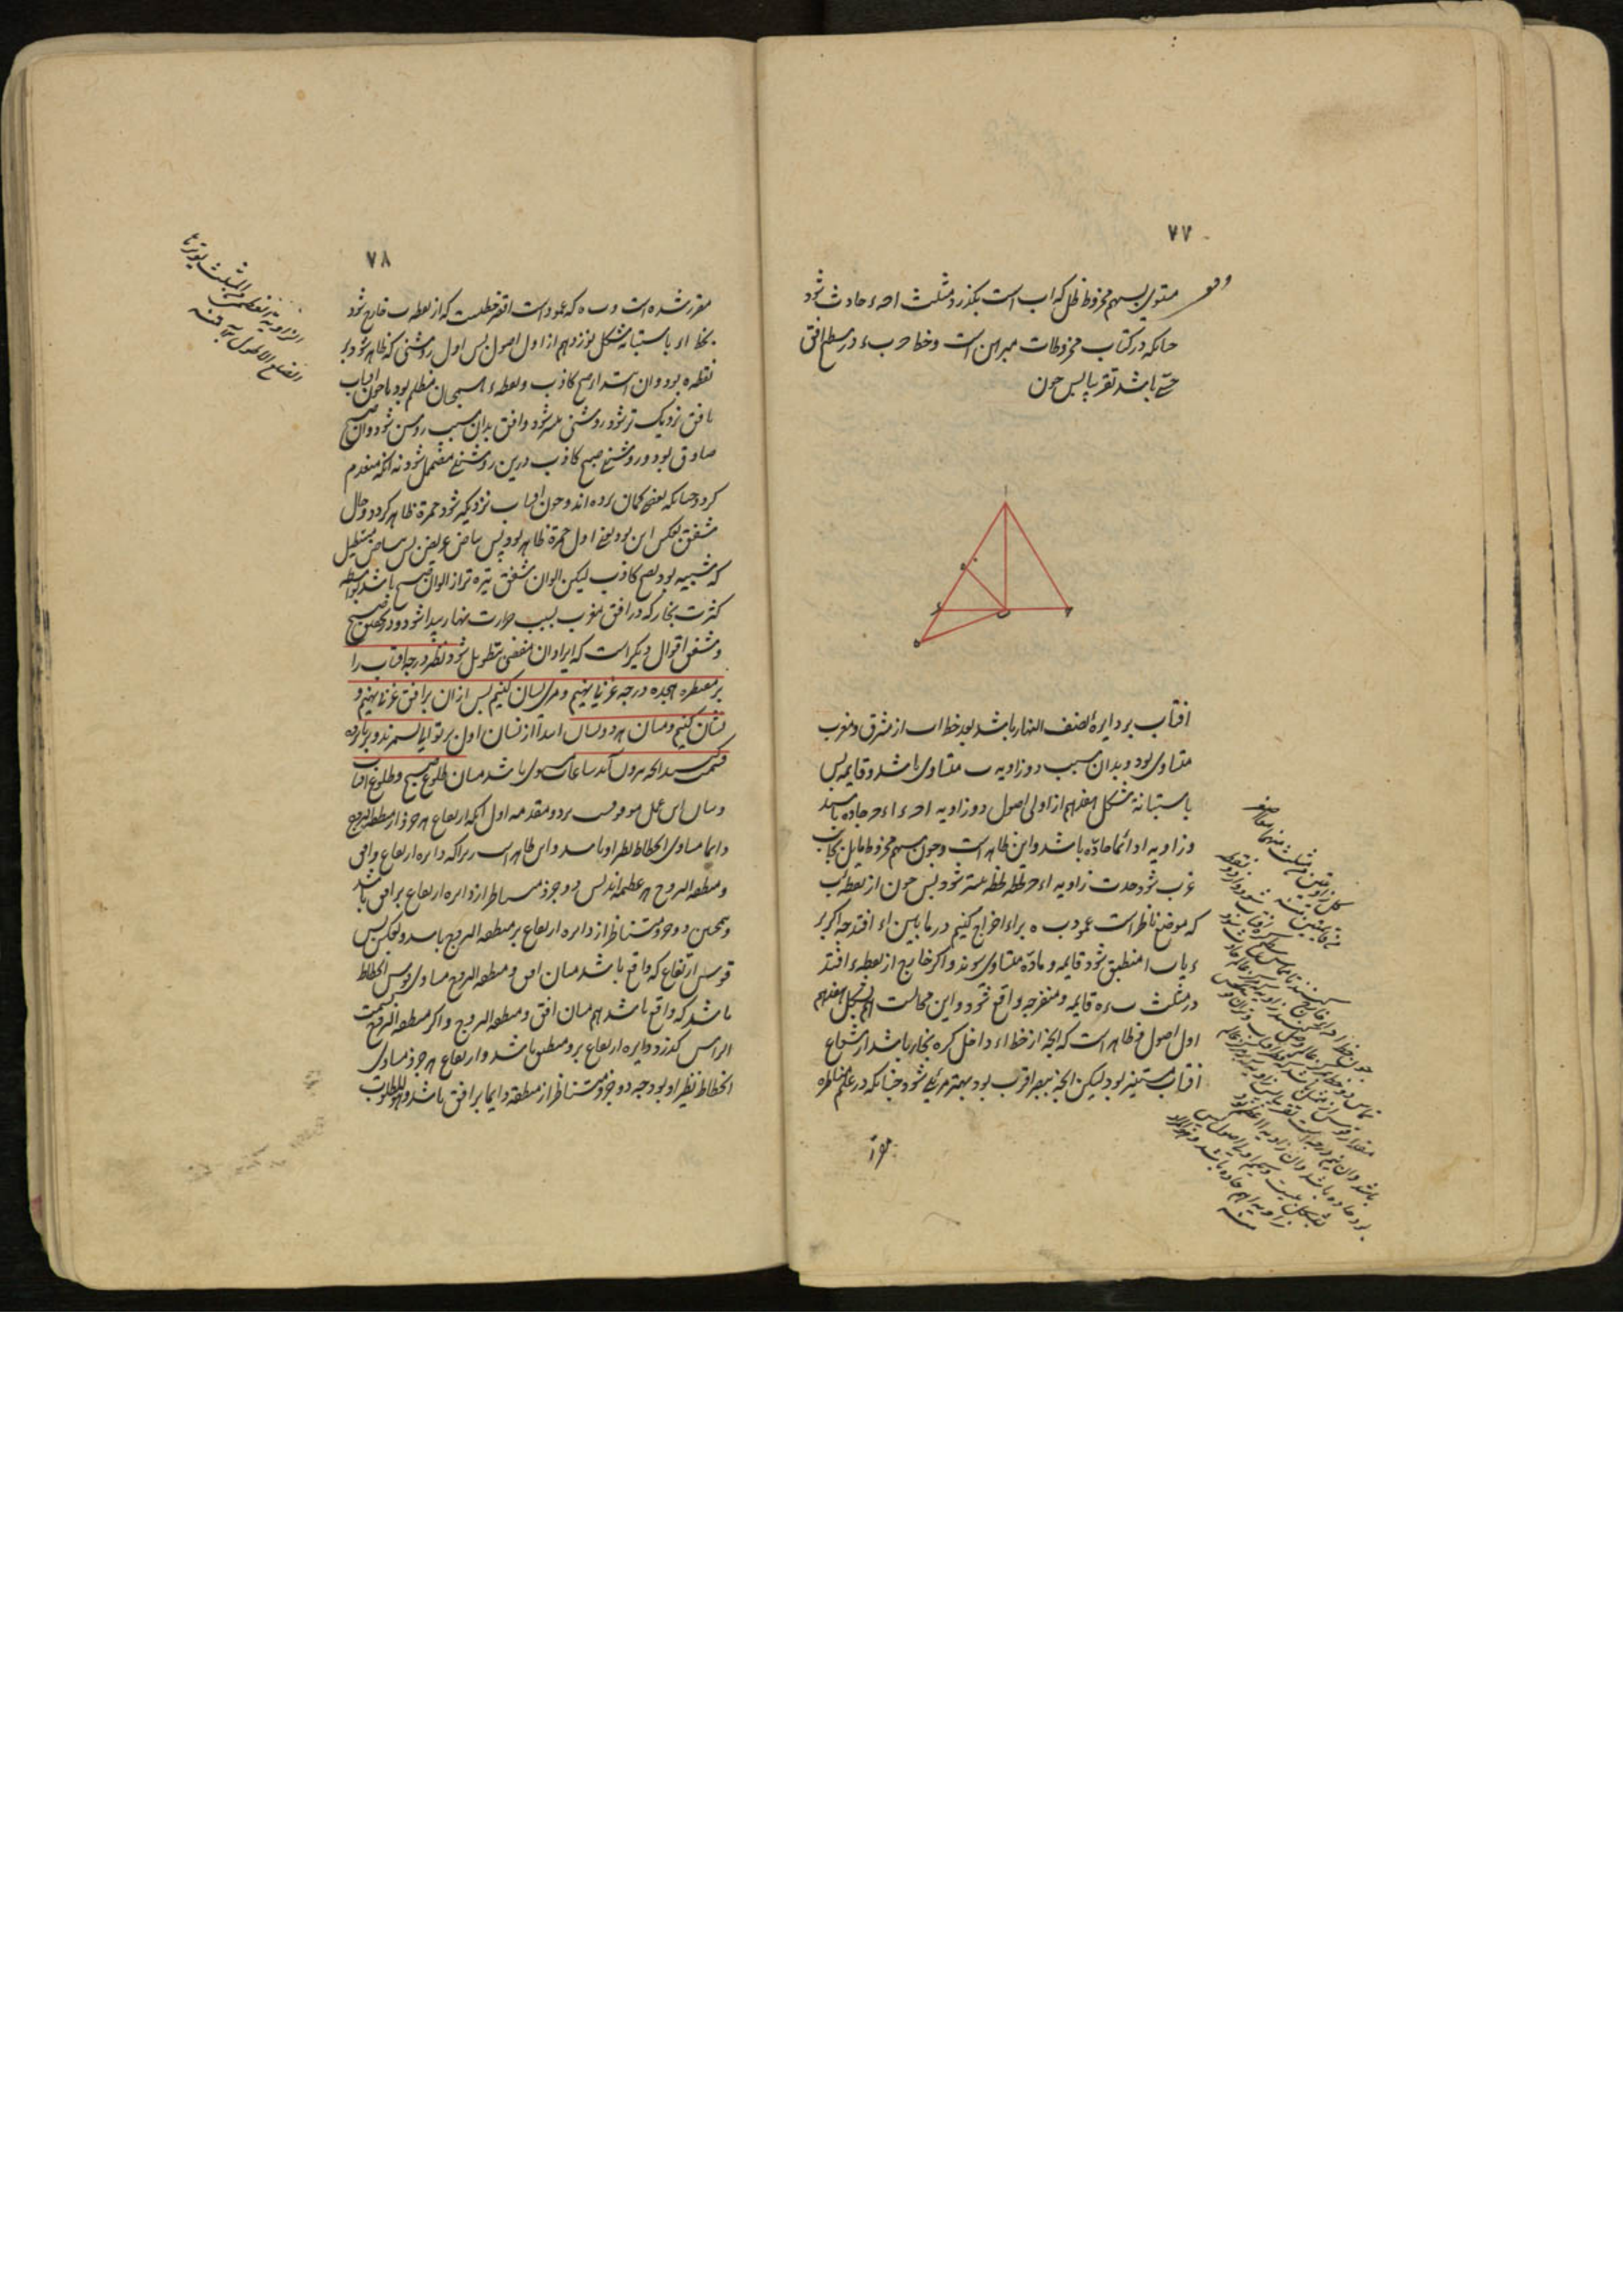 ۷۷
مستوی بسهم مخروط ظل که اب است بگذرد مثلث احء حادث شود
چنانکه در کتاب مخروطات مبرهن است و خط حبء در سطح افق
حسی باشد تقریبا پس چون
ا
ه
ء
ب
ح
افتاب بر دایره نصف النهار باشد بعد خط اب از مشرق و مغرب
متساوی بود و بدان سبب دو زاویه ب متساوی باشد و قایمه پس
باستبانة شکل هفدهم از اولی اصول دو زاویه احء اءح حاده باشند
و زاویه ا دائما حاده باشد و این ظاهر است و چون سهم مخروط مایل بجانب
غرب شود حدت زاویه اءح لحظه لحظه بیشتر شود پس چون از نقطه ب
که موضع ناظر است عمود به براء اخراج کنیم در مابین اء افتد چه اگر بر
ء یا ب ا منطبق شود قایمه و حاده متساوی شوند و اگر خارج از نقطه ء افتد
در مثلث بءه قایمه و منفرجه واقع شود و این محالست هم بشکل هفدهم
اول اصول و ظاهر است که انچه از خط اء داخل کره بخار باشد از شعاع
افتاب مستنیر بود لیکن انچه ببصر اقرب بود بهتر مرئی شود چنانکه در علم مناظره
مقرر
۷۸
مقرر شده است و به که عمود است اقصر خطیست که از نقطه ب خارج شود
بخط اء باستبانه شکل نوزدهم از اول اصول پس اول روشنی که ظاهر شود بر
نقطه ه بود و ان ابتداء صبح کاذب و نقطه ء همچنان مظلم بود تا چون افتاب
بافق نزدیک تر شود روشنی بیشتر شود و افق بدان سبب روشن شود و ان صبح
صادق بود و روشنی صبح کاذب درین روشنی مضمحل شود نه انکه منعدم
گردد چنانکه بعضی گمان برده اند و چون افتاب نزدیکتر شود حمرة ظاهر گردد و حال
شفق بعکس این بود یعنی اول حمرة ظاهر بود پس بیاض عریض پس بیاض مستطیل
که شبیه بود بصبح کاذب لیکن الوان شفق تیره تر از الوان صبح باشد بواسطه
کثرت بخار که در افق مغرب بسبب حرارت نهار پیدا شود و در تحقیق صبح
و شفق اقوال دیگر است که ایراد ان مفضی بتطویل شود نظیر درجه افتاب را
بر مقنطره هجده درجه غربی نهیم و مری نشان کنیم پس از ان بر افق غربی نهیم و
نشان کنیم و میان هر دو نشان ابتدا از نشان اول بر توالی بشمریم و بر پانزده
قسمت کنیم انچه بیرون آید ساعات مستوی باشد میان طلوع صبح و طلوع افتاب
و بیان این عمل موقوفست بر دو مقدمه اول انکه ارتفاع هر جزو از منطقة البروج
دایما مساوی انحطاط نظیر او باشد و این ظاهر است زیرا که دایره ارتفاع و افق
و منطقة البروج هر عظیمه اند پس دو جزو متناظر از دایره ارتفاع بر افق باشد
و همچنین دو جزو متناظر از دایره ارتفاع بر منطقة البروج باشد و بعکس پس
قوس ارتفاع که واقع باشد میان افق و منطقة البروج مساوی قوس انحطاط
باشد که واقع باشد هم میان افق و منطقة البروج و اگر منطقة البروج بسمت
الراس گذرد دایره ارتفاع برو منطبق باشد و ارتفاع هر جزو مساوی
انحطاط نظیر او بود چه دو جزو متناظر از منطقه دایما بر افق باشد و هو المطلوب